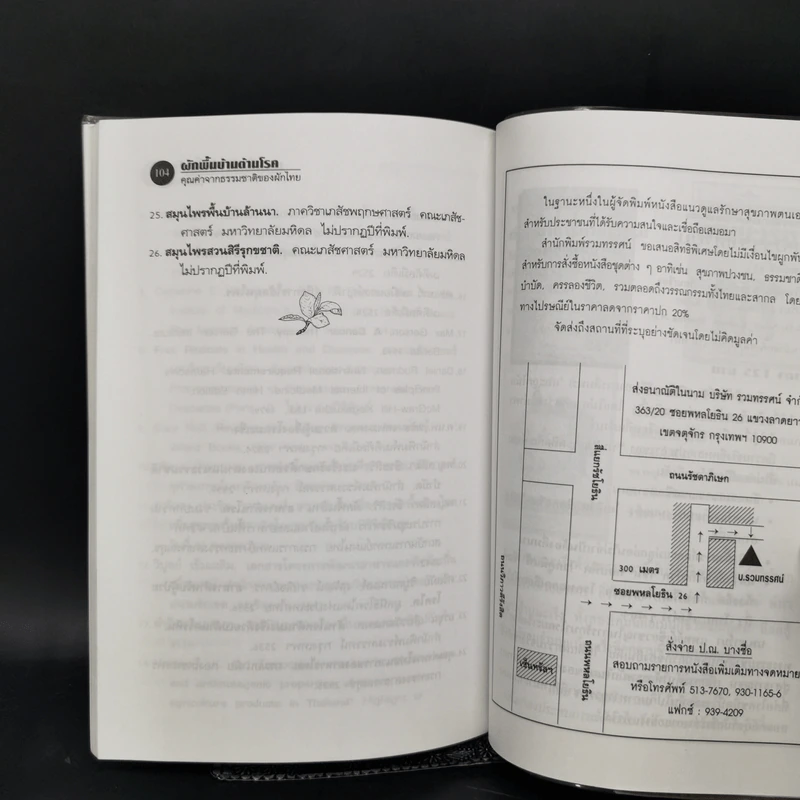 104
ผักพื้นบ้านต้านโรค
คุณค่าจากธรรมชาติของผักไทย
25. สมุนไพรพื้นบ้านล้านนา. ภาควิชาเภสัชพฤกษศาสตร์ คณะเภสัช-
ศาสตร์ มหาวิทยาลัยมหิดล ไม่ปรากฏปีที่พิมพ์.
26. สมุนไพรสวนสิรีรุกขชาติ. คณะเภสัชศาสตร์ มหาวิทยาลัยมหิดล
ไม่ปรากฏปีที่พิมพ์.
ในฐานะหนึ่งในผู้จัดพิมพ์หนังสือแนวดูแลรักษาสุขภาพตนเอ
สำหรับประชาชนที่ได้รับความสนใจและเชื่อถือเสมอมา
สำนักพิมพ์รวมทรรศน์ ขอเสนอสิทธิพิเศษโดยไม่มีเงื่อนไขผูกพัน
สำหรับการสั่งซื้อหนังสือชุดต่าง ๆ อาทิเช่น สุขภาพปวงชน, ธรรมชาติ
บำบัด, ครรลองชีวิต, รวมตลอดถึงวรรณกรรมทั้งไทยและสากล โดย
ทางไปรษณีย์ในราคาลดจากราคาปก 20%
จัดส่งถึงสถานที่ที่ระบุอย่างชัดเจนโดยไม่คิดมูลค่า
ส่งธนาณัติในนาม บริษัท รวมทรรศน์ จำก
363/20 ซอยพหลโยธิน 26 แขวงลาดยา
เขตจตุจักร กรุงเทพฯ 10900
สี่แยกรัชโยธิน
ถนนรัชดาภิเษก
300 เมตร
บ.รวมทรรศน์
ซอยพหลโยธิน 26
ถนนวิภาวดีรังสิต
ถนนพหลโยธิน
เซ็นทรัลฯ
สั่งจ่าย ป.ณ. บางซื่อ
สอบถามรายการหนังสือเพิ่มเติมทางจดหมาย
หรือโทรศัพท์ 513-7670, 930-1165-6
แฟกซ์ : 939-4209